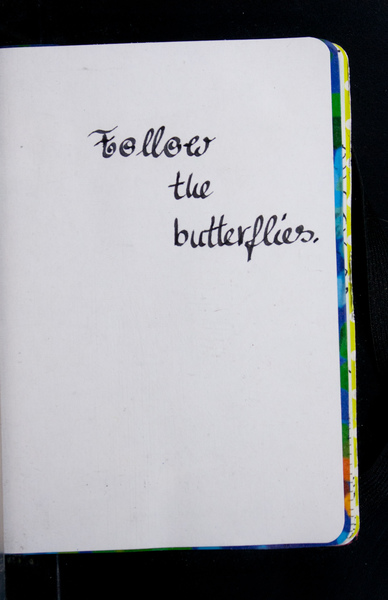 Follow
the
butterflies.